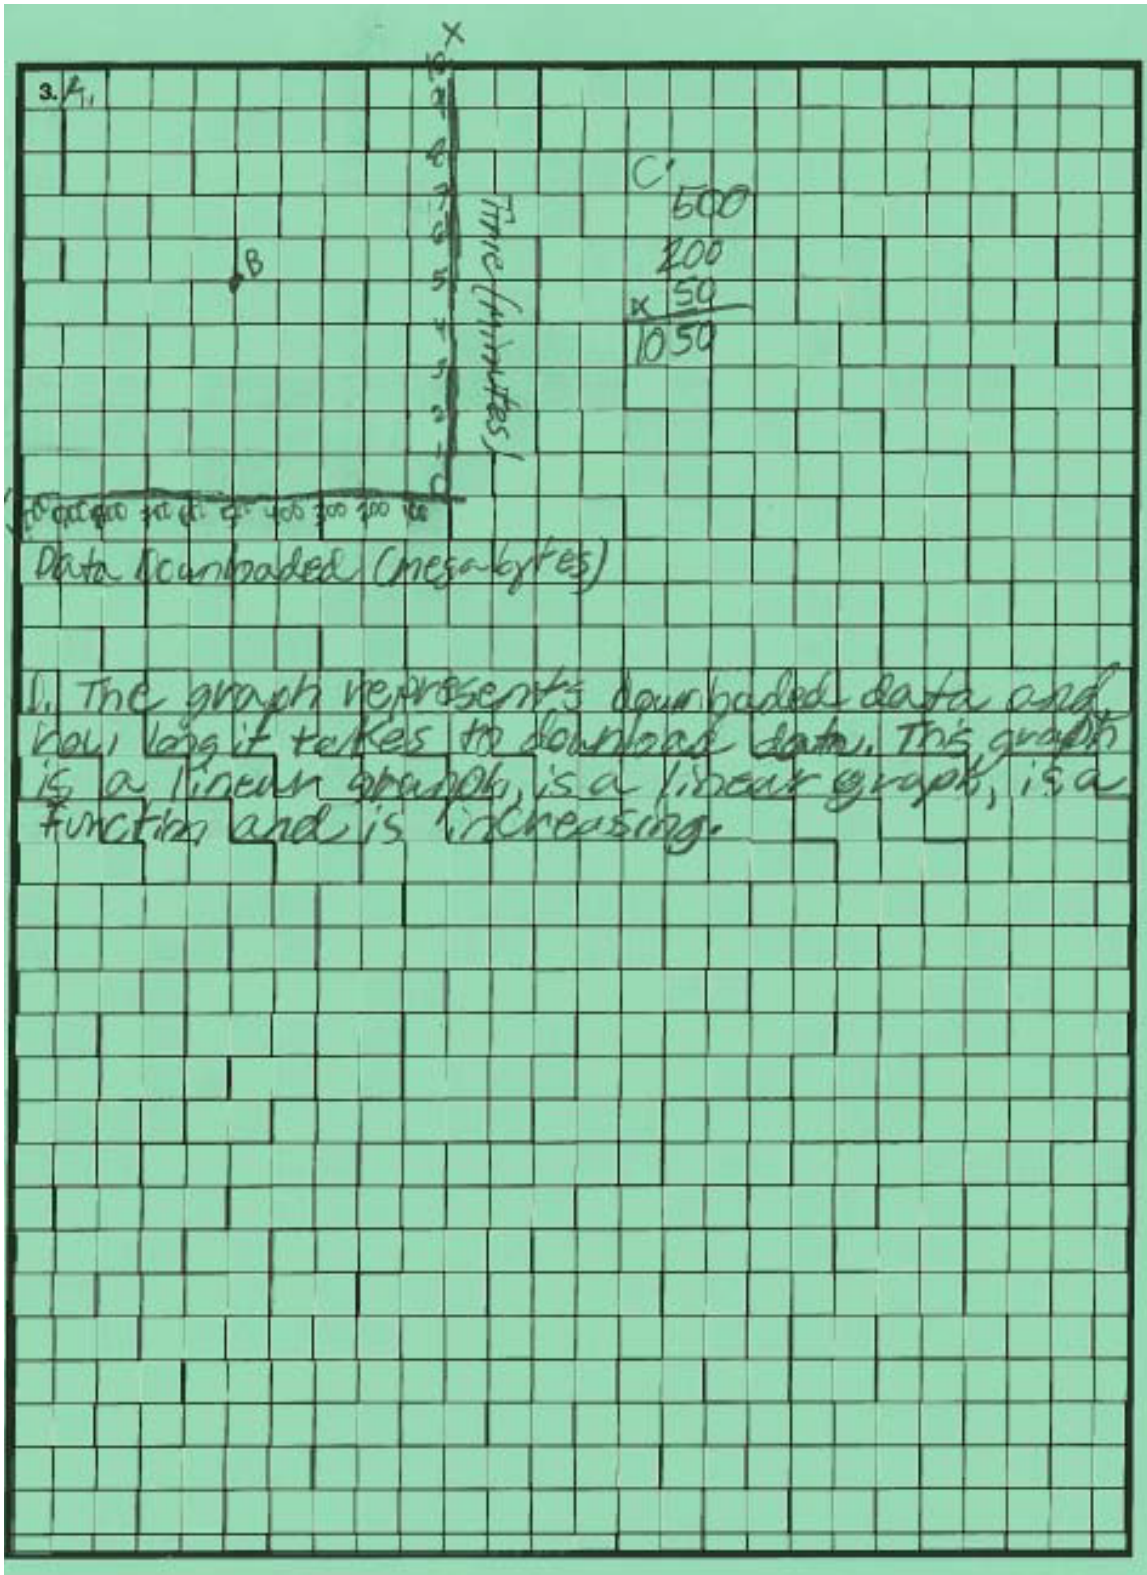 3. A.
X
10
9
8
7
6
5
4
3
2
1
0
Time (minutes)
B
500 400 300 200 100
Data Downloaded (megabytes)
C.
500
200
x 50
1050
D. The graph represents downloaded data and
how long it takes to download data. This graph
is a linear graph, is a linear graph, is a
function and is increasing.